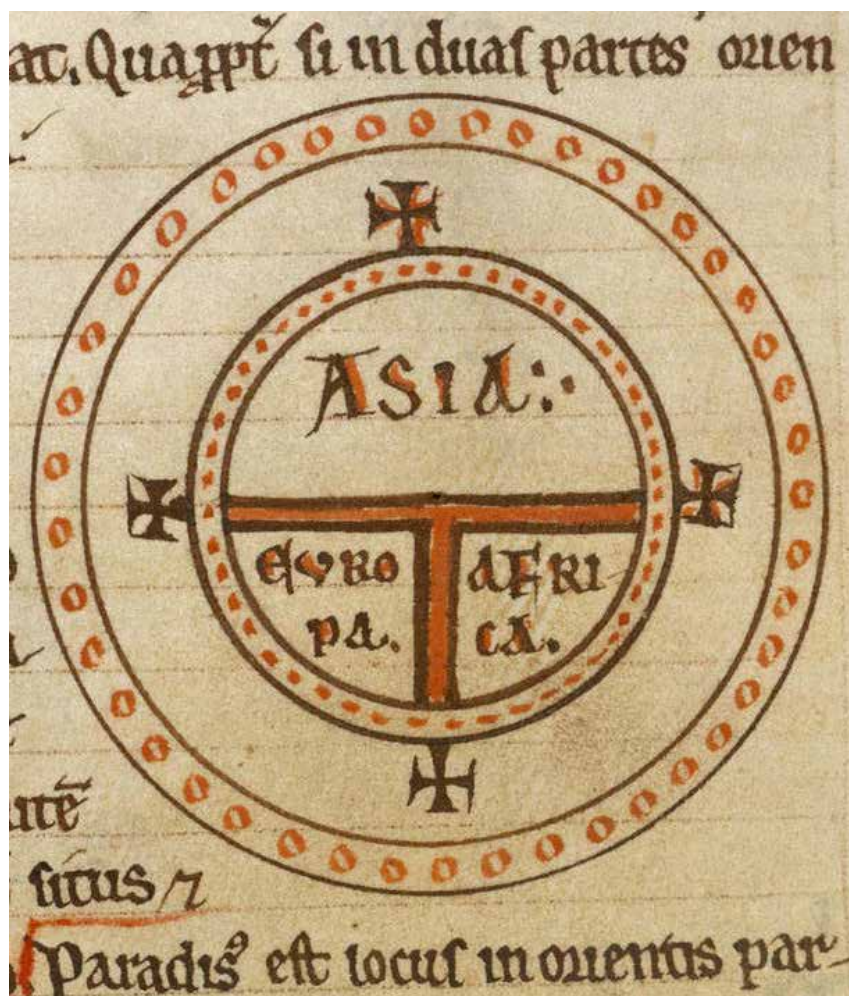 at. Quaꝓpt̃ si in duas partes orien
ASIA
EVRO
PA.
AFRI
CA.
itē
situs ⁊
Paradisꝰ est locus in orientis par-